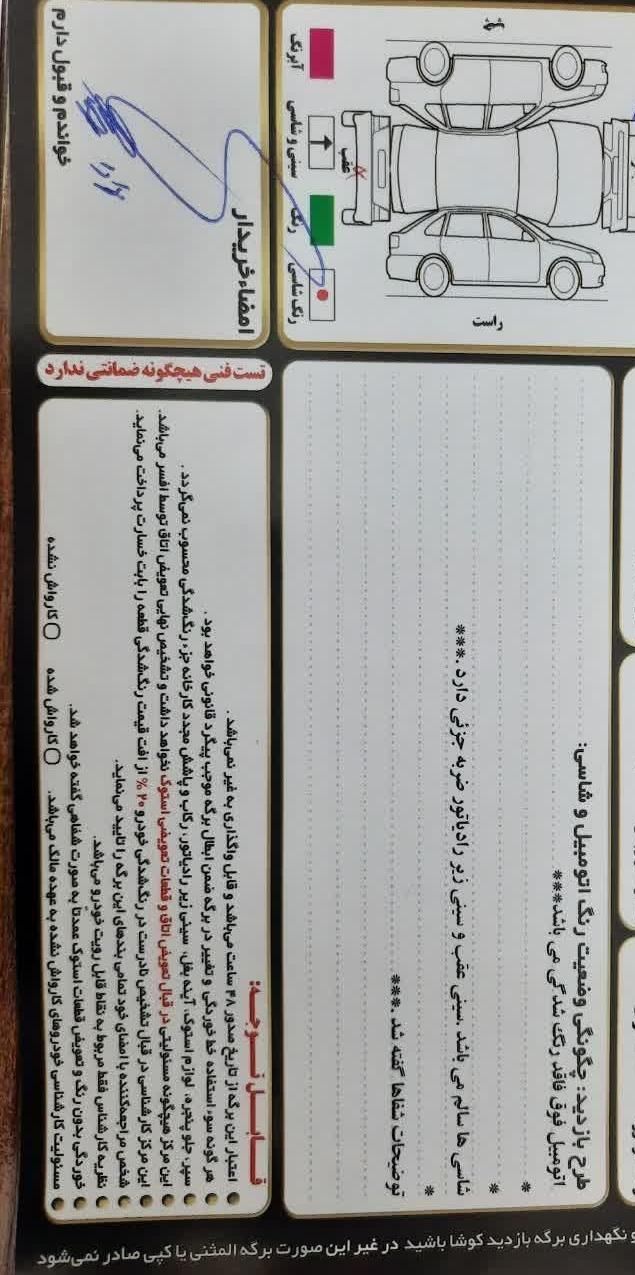 طرح بازدید: چگونگی وضعیت رنگ اتومبیل و شاسی:
اتومبیل فوق فاقد رنگ شدگی می باشد***
*
*
شاسی ها سالم می باشد .سینی عقب و سینی زیر رادیاتور ضربه جزئی دارد .***
*
توضیحات شفاها گفته شد .***
راست
عقب
آبرنگ
سینی و شاسی
رنگ
رنگ شاسی
قابل توجه:
اعتبار این برگه از تاریخ صدور ۴۸ ساعت می‌باشد و قابل واگذاری به غیر نمی‌باشد.
هر گونه سوء استفاده خط خوردگی و تغییر در برگه ضمن ابطال برگه موجب پیگرد قانونی خواهد بود.
سپر، جلو پنجره، لوازم استوک، آینه بغل، سینی زیر رادیاتور، رکاب و پاشش مجدد کارخانه جزء رنگ‌شدگی محسوب نمی‌گردد.
این مرکز هیچگونه مسئولیتی در قبال تعویض اتاق و قطعات تعویضی استوک نخواهد داشت و تشخیص نهایی تعویض اتاق توسط افسر می‌باشد.
این مرکز کارشناسی در قبال تشخیص نادرست در رنگ‌شدگی خودرو ۲۰% از افت قیمت رنگ‌شدگی قطعه را بابت خسارت پرداخت می‌نماید.
شخص مراجعه‌کننده با امضای خود تمامی بندهای این برگه را تایید می‌نماید.
نظریه کارشناس فقط مربوط به نقاط قابل رویت خودرو می‌باشد.
خوردگی بدون رنگ و تعویض قطعات استوک عمدتاً به صورت شفاهی گفته خواهد شد.
مسئولیت کارشناسی خودروهای کارواش نشده به عهده مالک می‌باشد. کارواش شده کارواش نشده
تست فنی هیچگونه ضمانتی ندارد
امضاء خریدار
خواندم و قبول دارم
و نگهداری برگه بازدید کوشا باشید در غیر این صورت برگه المثنی یا کپی صادر نمی‌شود